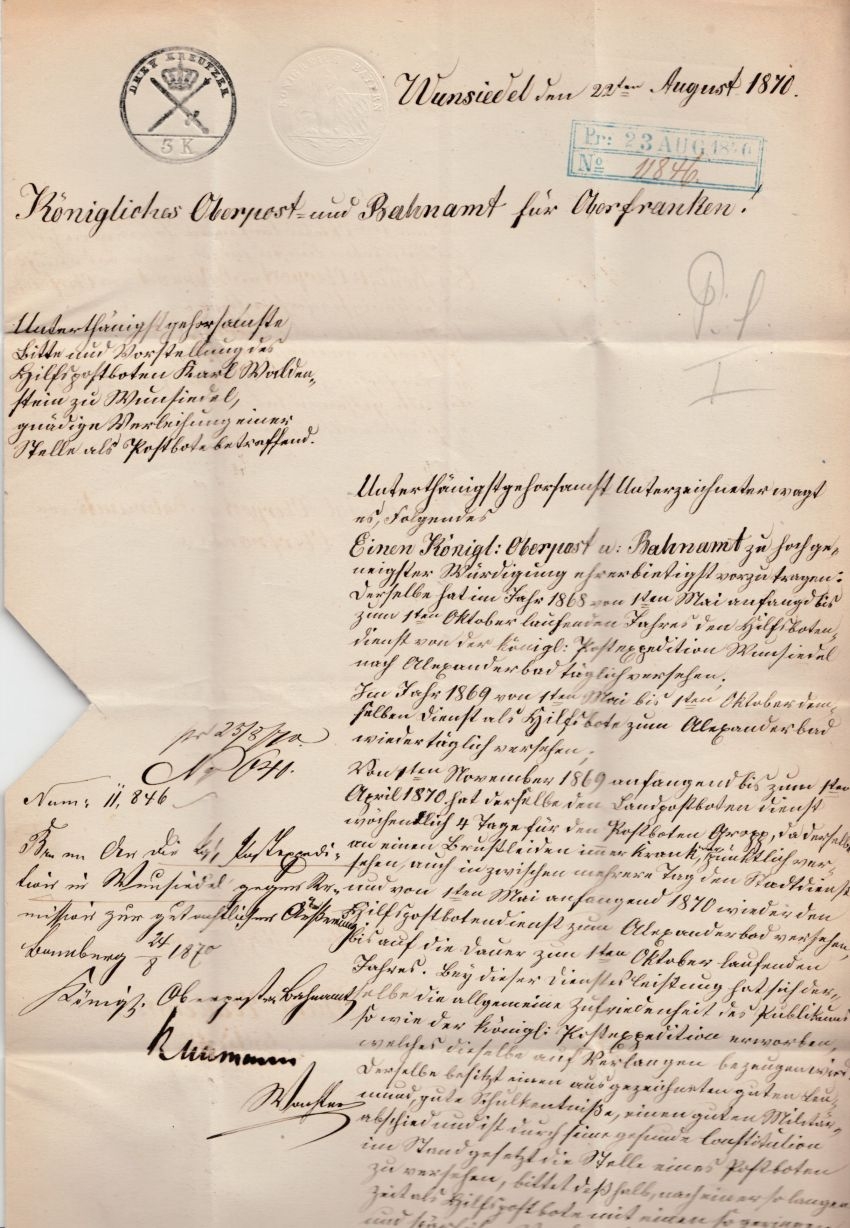 DREY KREUTZER
3 K
BAYERN
Wunsiedel den 22ten August 1870.
Pr: 23 AUG 1870
No 11846.
Königliches Oberpost- und Bahnamt für Oberfranken!
P. S.
I
Unterthänigstgehorsamste
Bitte und Vorstellung des
Hilfspostboten Karl Walden-
stein zu Wunsiedel,
gnädige Verleihung einer
Stelle als Postbote betreffend.
Unterthänigstgehorsamst Unterzeichneter wagt
es, Folgendes
Einen Königl: Oberpost u: Bahnamt zu hochge-
neigtester Würdigung ehrerbietigst vorzutragen:
Derselbe hat im Jahr 1868 von 1ten Mai anfangd bis
zum 1ten Oktober laufenden Jahres den Hilfsboten-
dienst von der königl: Postexpedition Wunsiedel
nach Alexanderbad täglich versehen;
Im Jahr 1869 von 1ten Mai bis 1ten Oktober dem-
selben Dienst als Hilfsbote zum Alexanderbad
wieder täglich versehen;
Von 1ten November 1869 anfangend bis zum 1ten
April 1870 hat derselbe den Landpostboten dienst
wochentlich 4 Tage für den Postboten Gropp, da derselbe
an einen Brustleiden immer krank, pünktlich ver-
sehen, auch inzwischen mehrere Tag den Stadtdienst
und von 1ten Mai anfangend 1870 wieder den
Hilfspostbotendienst zum Alexanderbad versehen,
bis auf die Dauer zum 1ten Oktober laufenden
Jahres. Bey dieser Dienstesleistung hat sich der-
selbe die allgemeine Zufriedenheit des Publikums
so wie der königl: Postexpedition erworben,
welches dieselbe auf Verlangen bezeugen wird.
Derselbe besitzt einen ausgezeichneten guten Leu-
mund, gute Schulkentniße, einen guten Militär-
abschied und ist durch seine gesunde Constitution
im Stand gesetzt die Stelle eines Postboten
zu versehen, bittet deßhalb, nach einer so langen
Zeit als Hilfspostbote mit einen so geringen
und
pr 25/8/70.
No 641.
Num: 11,846
An die kgl. Postexpedi-
tion in Wunsiedel gegen Re-
mission zur gutachtlichen Äußerung
Bamberg 24/8 1870
Königl. Oberpost u. Bahnamt